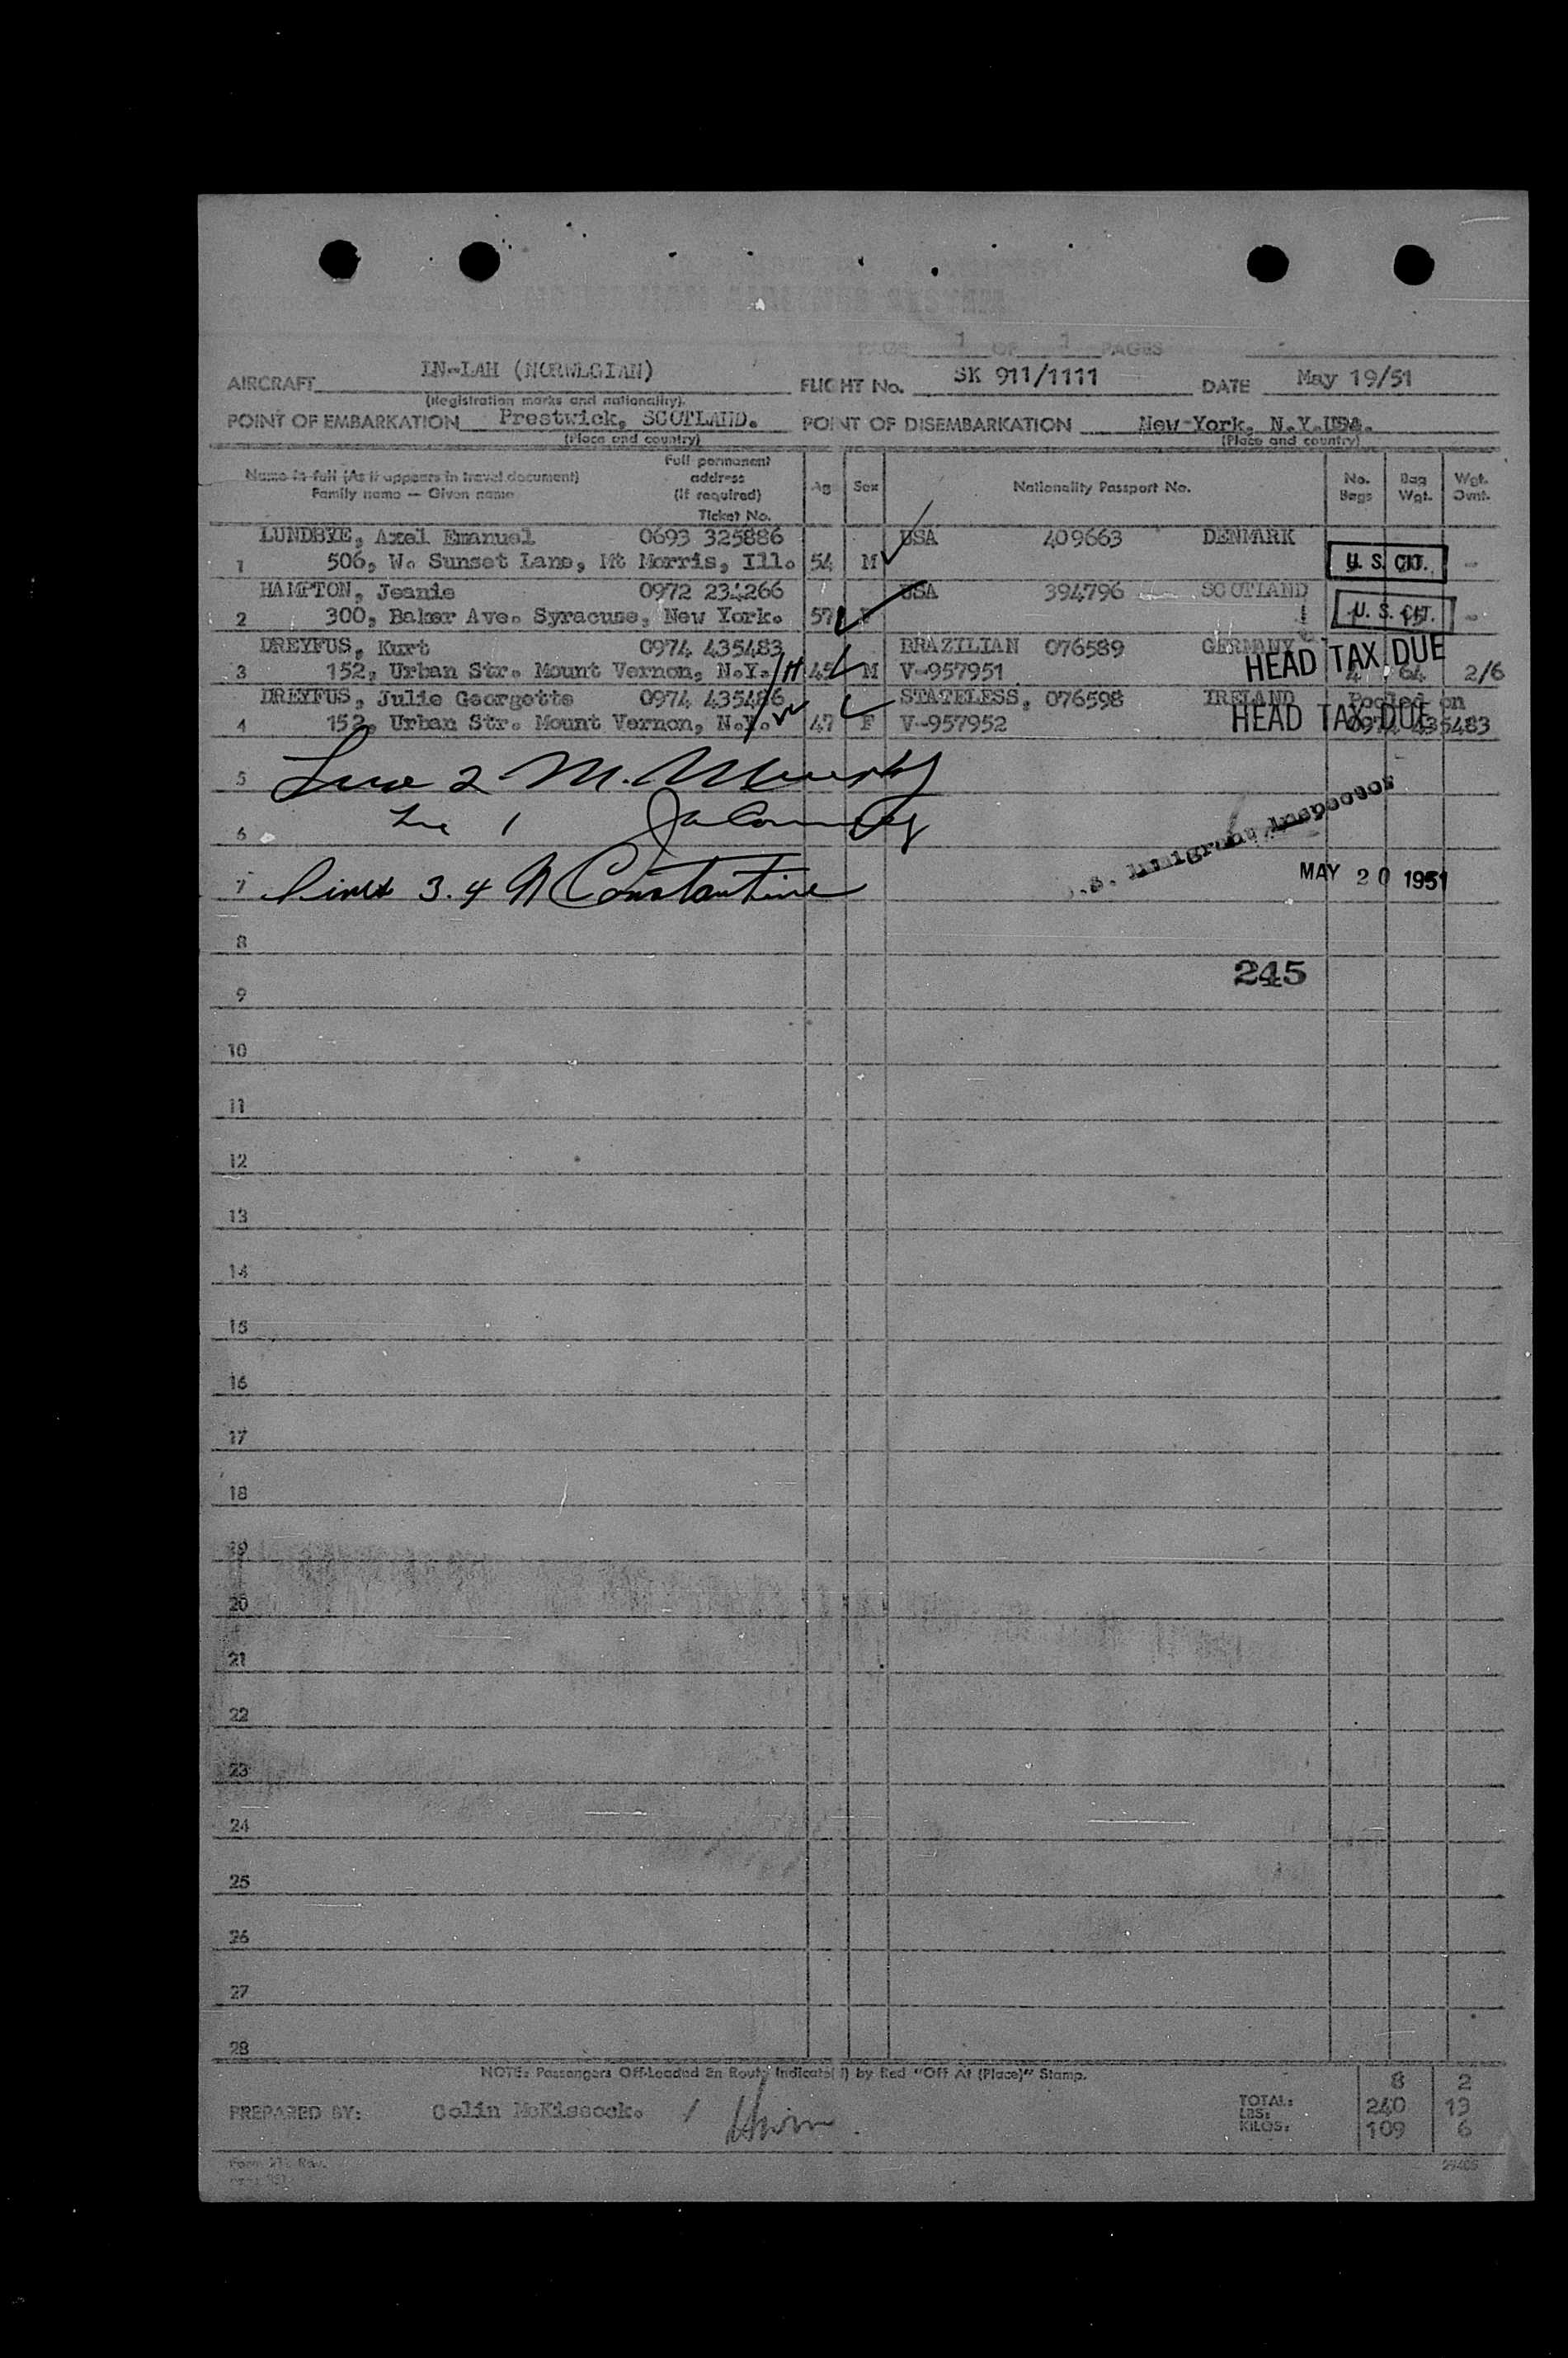 PAGE 1 OF 1 PAGES
AIRCRAFT LN-LAH (NORWEGIAN) FLIGHT No. SK 911/1111 DATE May 19/51
(Registration marks and nationality).
POINT OF EMBARKATION Prestwick, SCOTLAND. POINT OF DISEMBARKATION New-York, N.Y.USA.
(Place and country) (Place and country)
Name in full (As it appears in travel document) Family name — Given name Full permanent address (If required) Ticket No. Age Sex Nationality Passport No. No. Bags Bag Wgt. Wgt. Ovnt.
LUNDBYE, Axel Emanuel 0693 325886 USA 409663 DENMARK
1 506, W. Sunset Lane, Mt Morris, Ill. 54 M U. S. CIT. -
HAMPTON, Jeanie 0972 234266 USA 394796 SCOTLAND
2 300, Baker Ave. Syracuse, New York. 57 F U. S. CIT. -
DREYFUS, Kurt 0974 435483 BRAZILIAN 076589 GERMANY
HEAD TAX DUE
3 152, Urban Str. Mount Vernon, N.Y. H 45 M V-957951 4 64 2/6
DREYFUS, Julie Georgette 0974 435486 STATELESS, 076598 IRELAND Pooled on
HEAD TAX DUE
4 152, Urban Str. Mount Vernon, N.Y. W 47 F V-957952 0974 435483
5 Line 2 M. Murphy
6 Line 1
U.S. Immigrant Inspector
7 Lines 3. 4 N Constantine MAY 20 1951
8
245
9
10
11
12
13
14
15
16
17
18
19
20
21
22
23
24
25
26
27
28
NOTE: Passengers Off-Loaded En Route Indicated by Red "Off At (Place)" Stamp.
8 2
PREPARED BY: Colin McKissock. / TOTAL:
LBS: 240 13
KILOS: 109 6